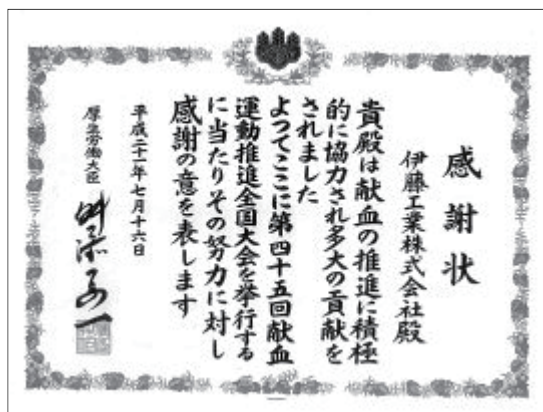 感謝状
伊藤工業株式会社殿
貴殿は献血の推進に積極
的に協力され多大の貢献を
されました
よつてここに第四十五回献血
運動推進全国大会を挙行する
に当たりその努力に対し
感謝の意を表します
平成二十一年七月十六日
厚生労働大臣
舛添要一